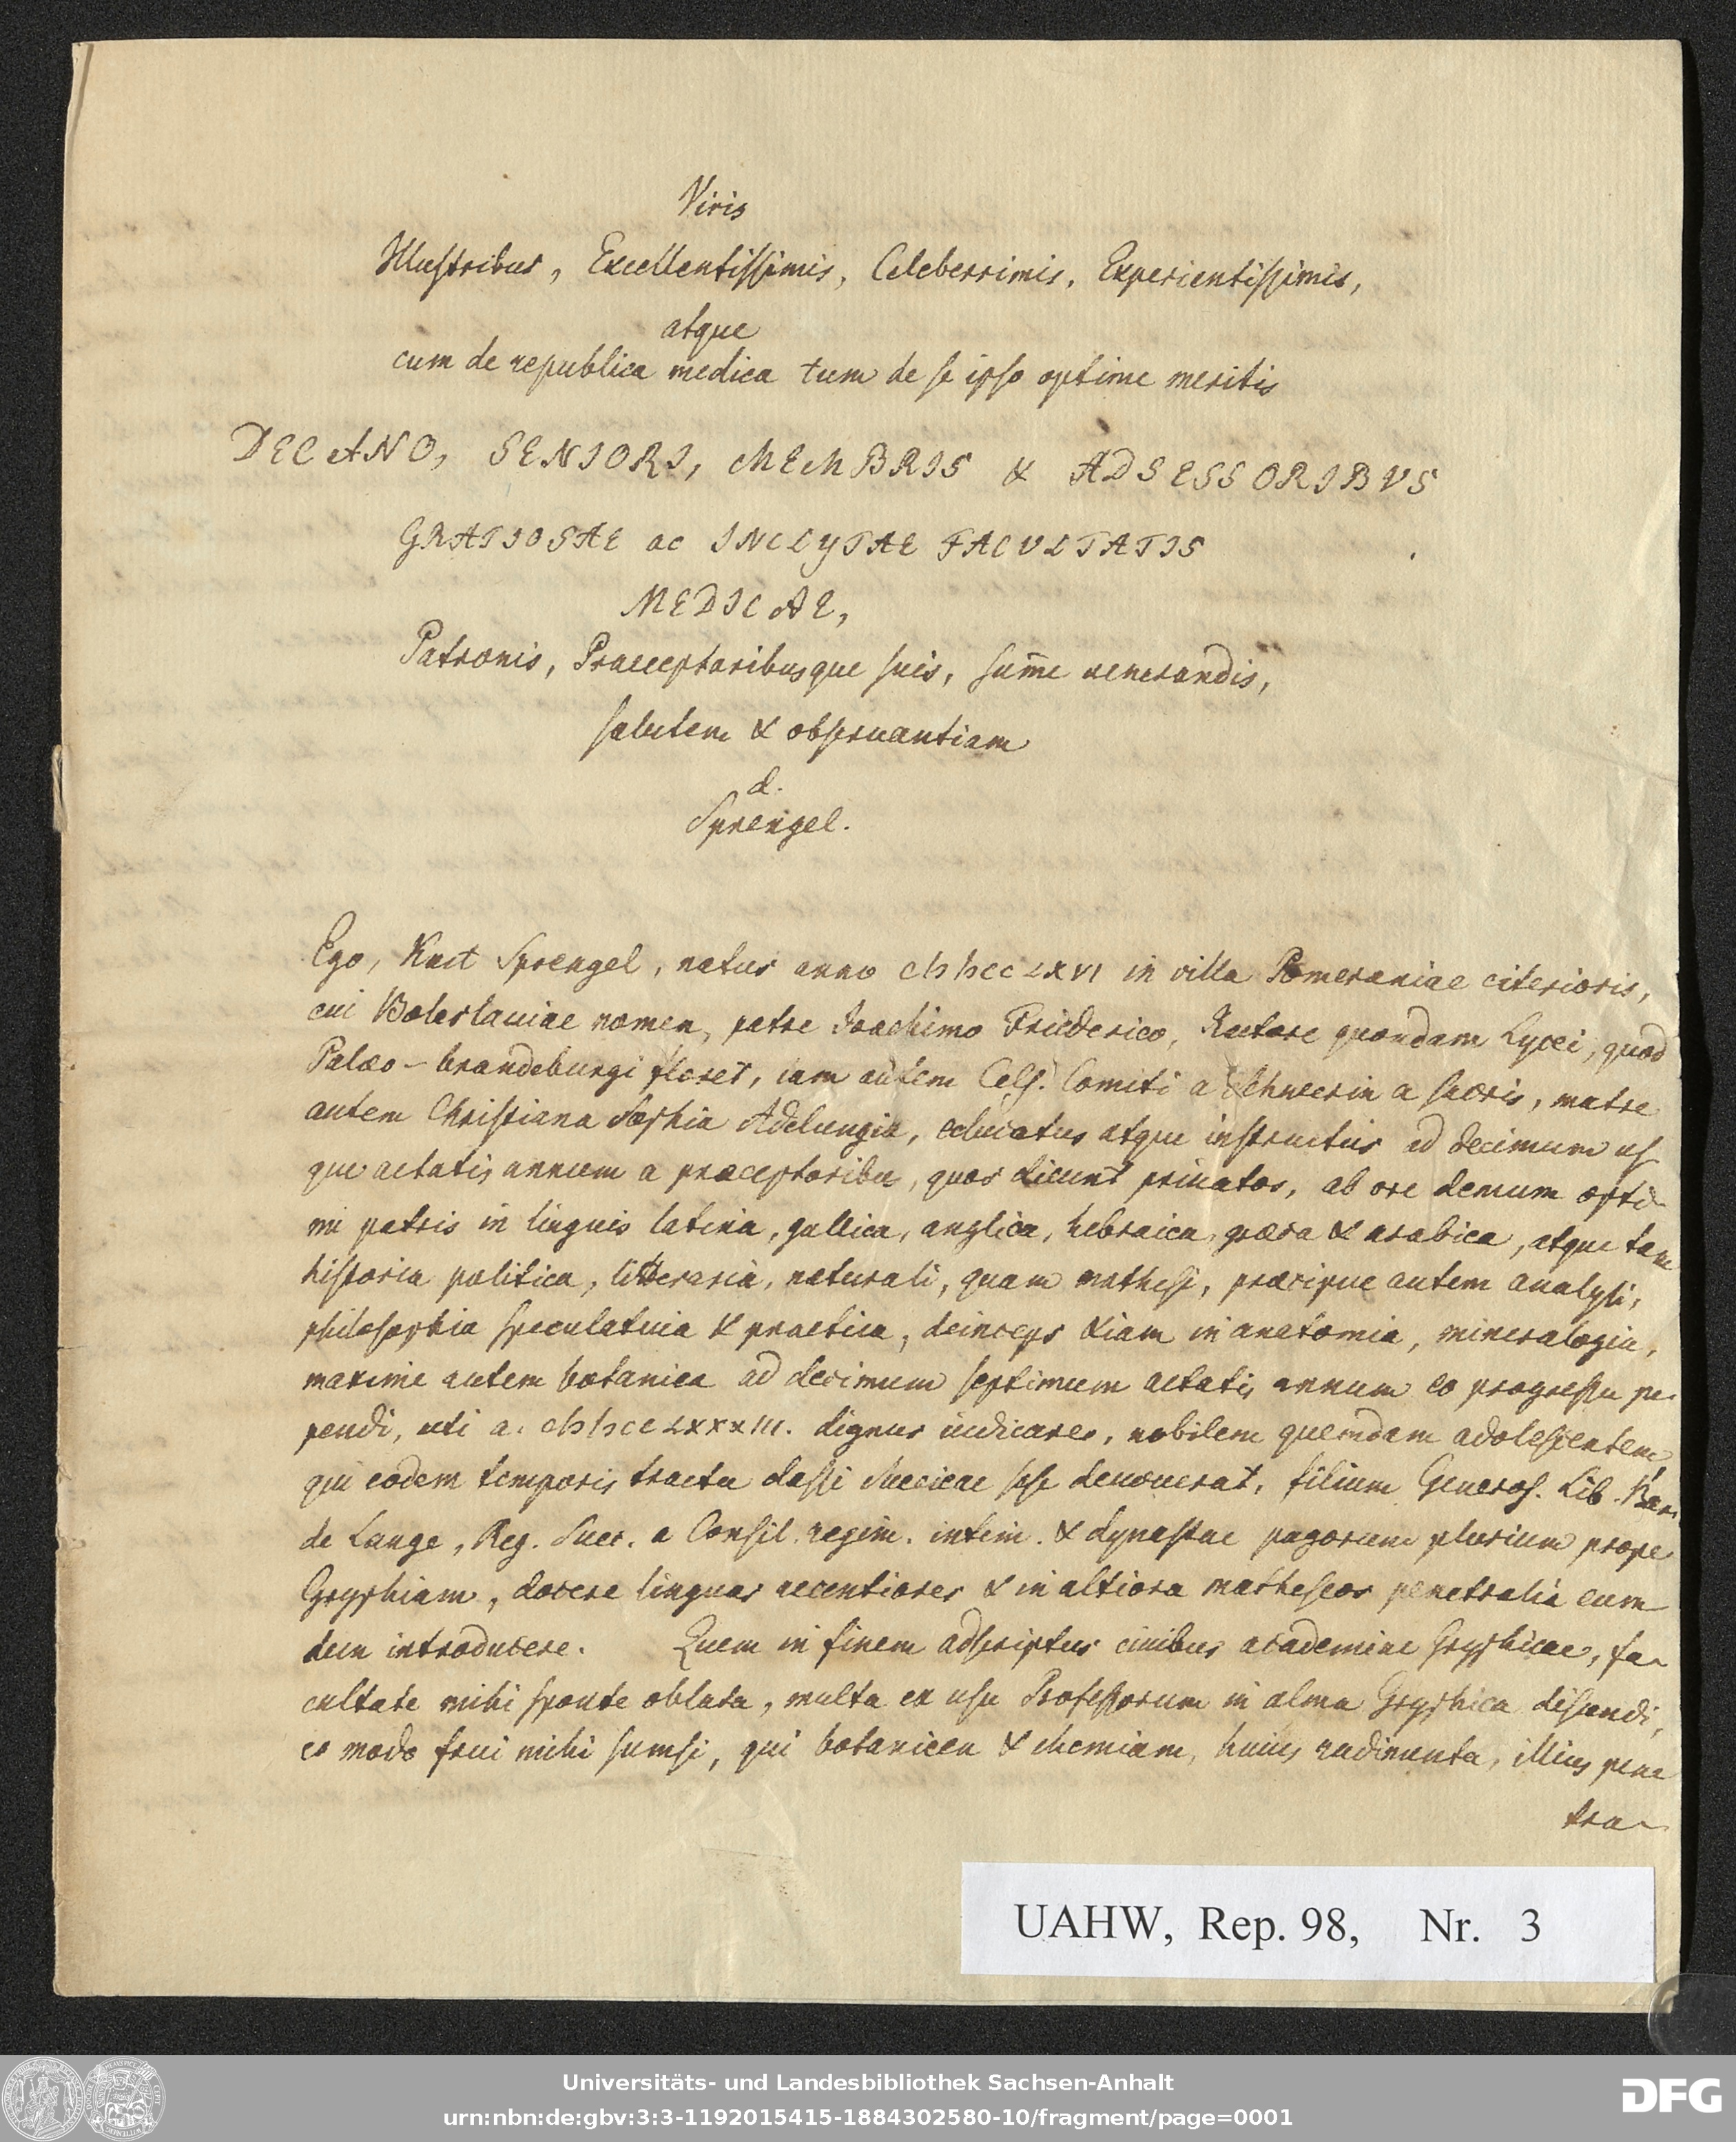 Viris
Illustribus, Excellentissimis, Celeberrimis, Experientissimis,
atque
cum de republica medica tum de se ipso optime meritis
DECANO, SENIORI, MEMBRIS & ADSESSORIBVS
GRATIOSAE ac INCLYTAE FACVLTATIS
MEDICAE,
Patronis, Praeceptoribusque suis, sum̄e uenerandis,
salutem & obseruantiam
d.
Sprengel.
Ego, Kurt Sprengel, natus anno cIↄIↄccLXVI in villa Pomeraniae citerioris,
cui Boleslauiae nomen, patre Ioachimo Friederico, Rectore quondam Lycei, quod
Palaeo-brandeburgi floret, iam autem Cels. Comiti a Schwerin a sacris, matre
autem Christiana Sophia Adelungia, educatus atque instructus ad decimum us
que aetatis annum a praeceptoribus, quos dicunt priuatos, ab ore demum opti-
mi patris in linguis latina, gallica, anglica, hebraica, graeca & arabica, atque tam
historia politica, litteraria, naturali, quam mathesi, praecipue autem analysi,
philosophia speculatiua & practica, deinceps etiam in anatomia, mineralogia,
maxime autem botanica ad decimum septimum aetatis annum eo progressu pe-
pendi, uti a. cIↄIↄccLXXXIII. dignus iudicarer, nobilem quemdam adolescentem
qui eodem temporis tractu classi Suecicae sese deuouerat, filium Generos. Lib. Bar.
de Lange, Reg. Suec. a Consil. regim. intim. & dynastae pagorum plurium prope
Gryphiam, docere linguas recentiores & in altiora matheseos penetralia eum
dem introducere. Quem in finem adscriptus ciuibus academiae Gryphicae, fa-
cultate mihi sponte oblata, multa ex usu Professorum in alma Gryphica discendi,
eo modo frui mihi sumsi, qui botanicen & chemiam, huius rudimenta, illius pene
tra-
UAHW, Rep. 98, Nr. 3
Universitäts- und Landesbibliothek Sachsen-Anhalt
urn:nbn:de:gbv:3:3-1192015415-1884302580-10/fragment/page=0001
DFG